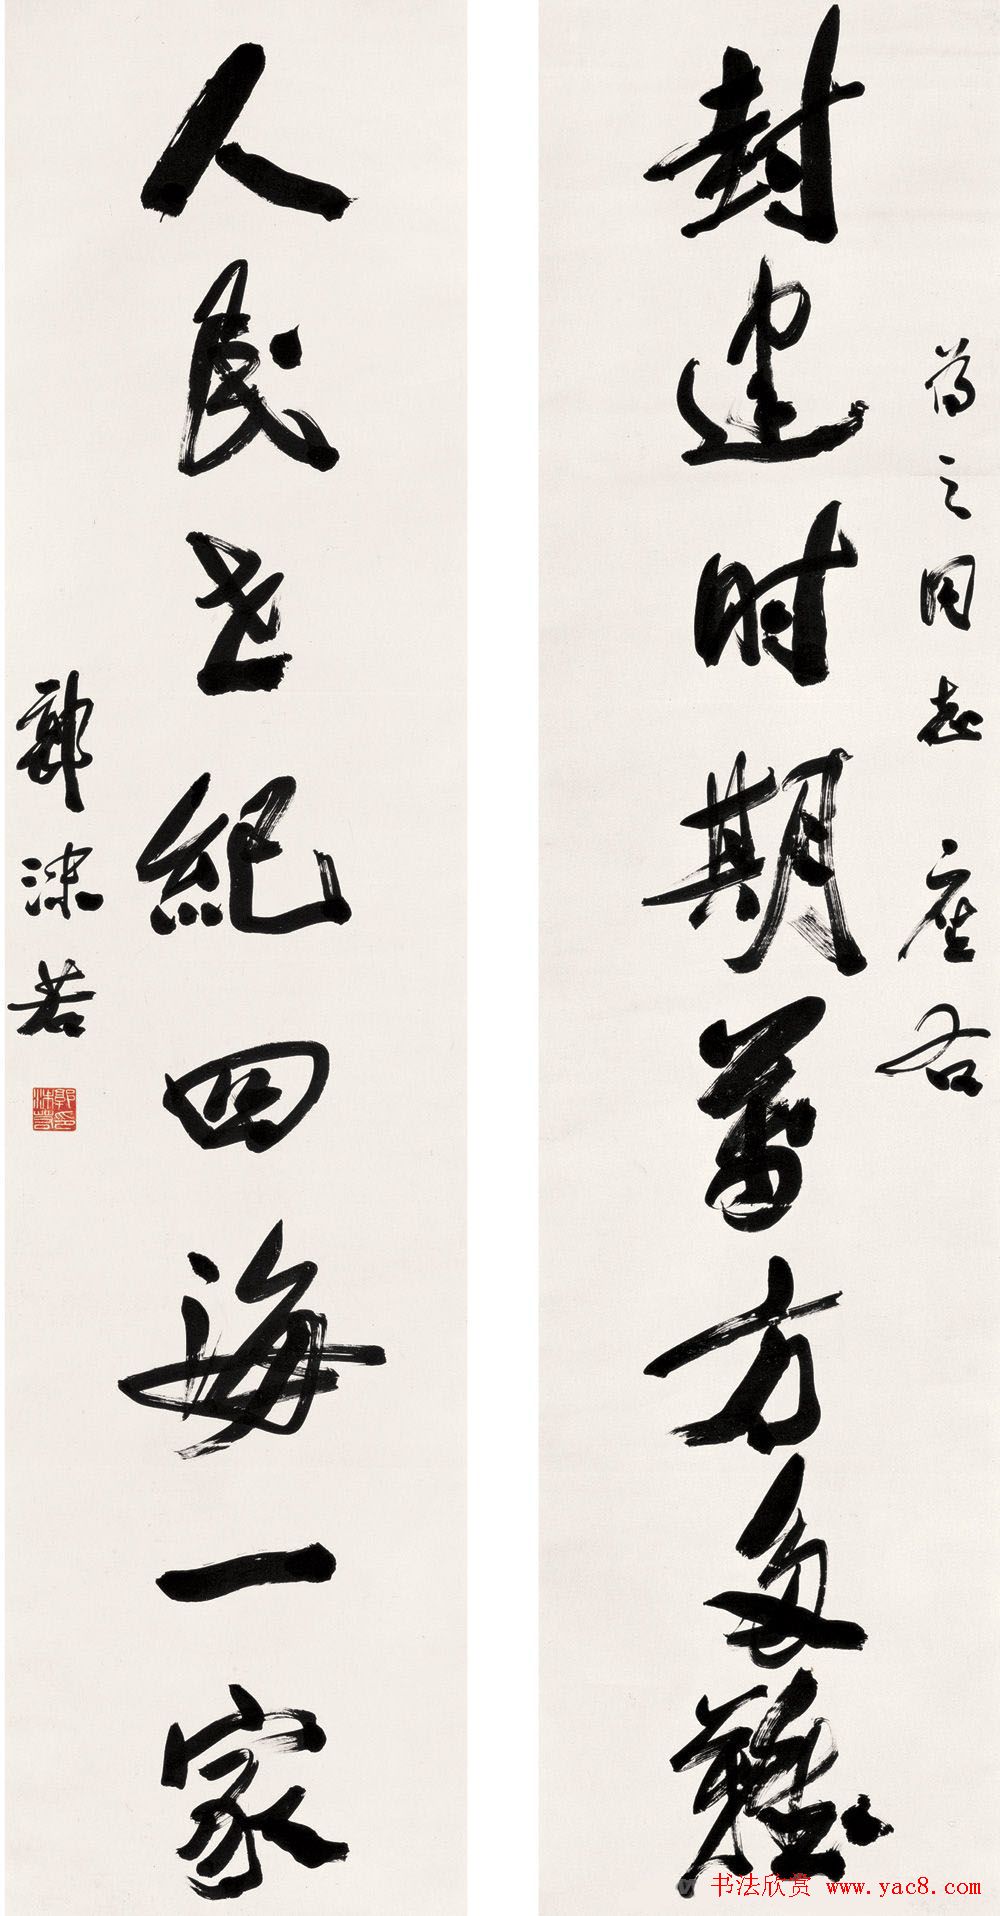 之同志座右
封建时期萬方多難
人民世紀四海一家
郭沫若
郭沫若印
书法欣赏 www.yac8.com